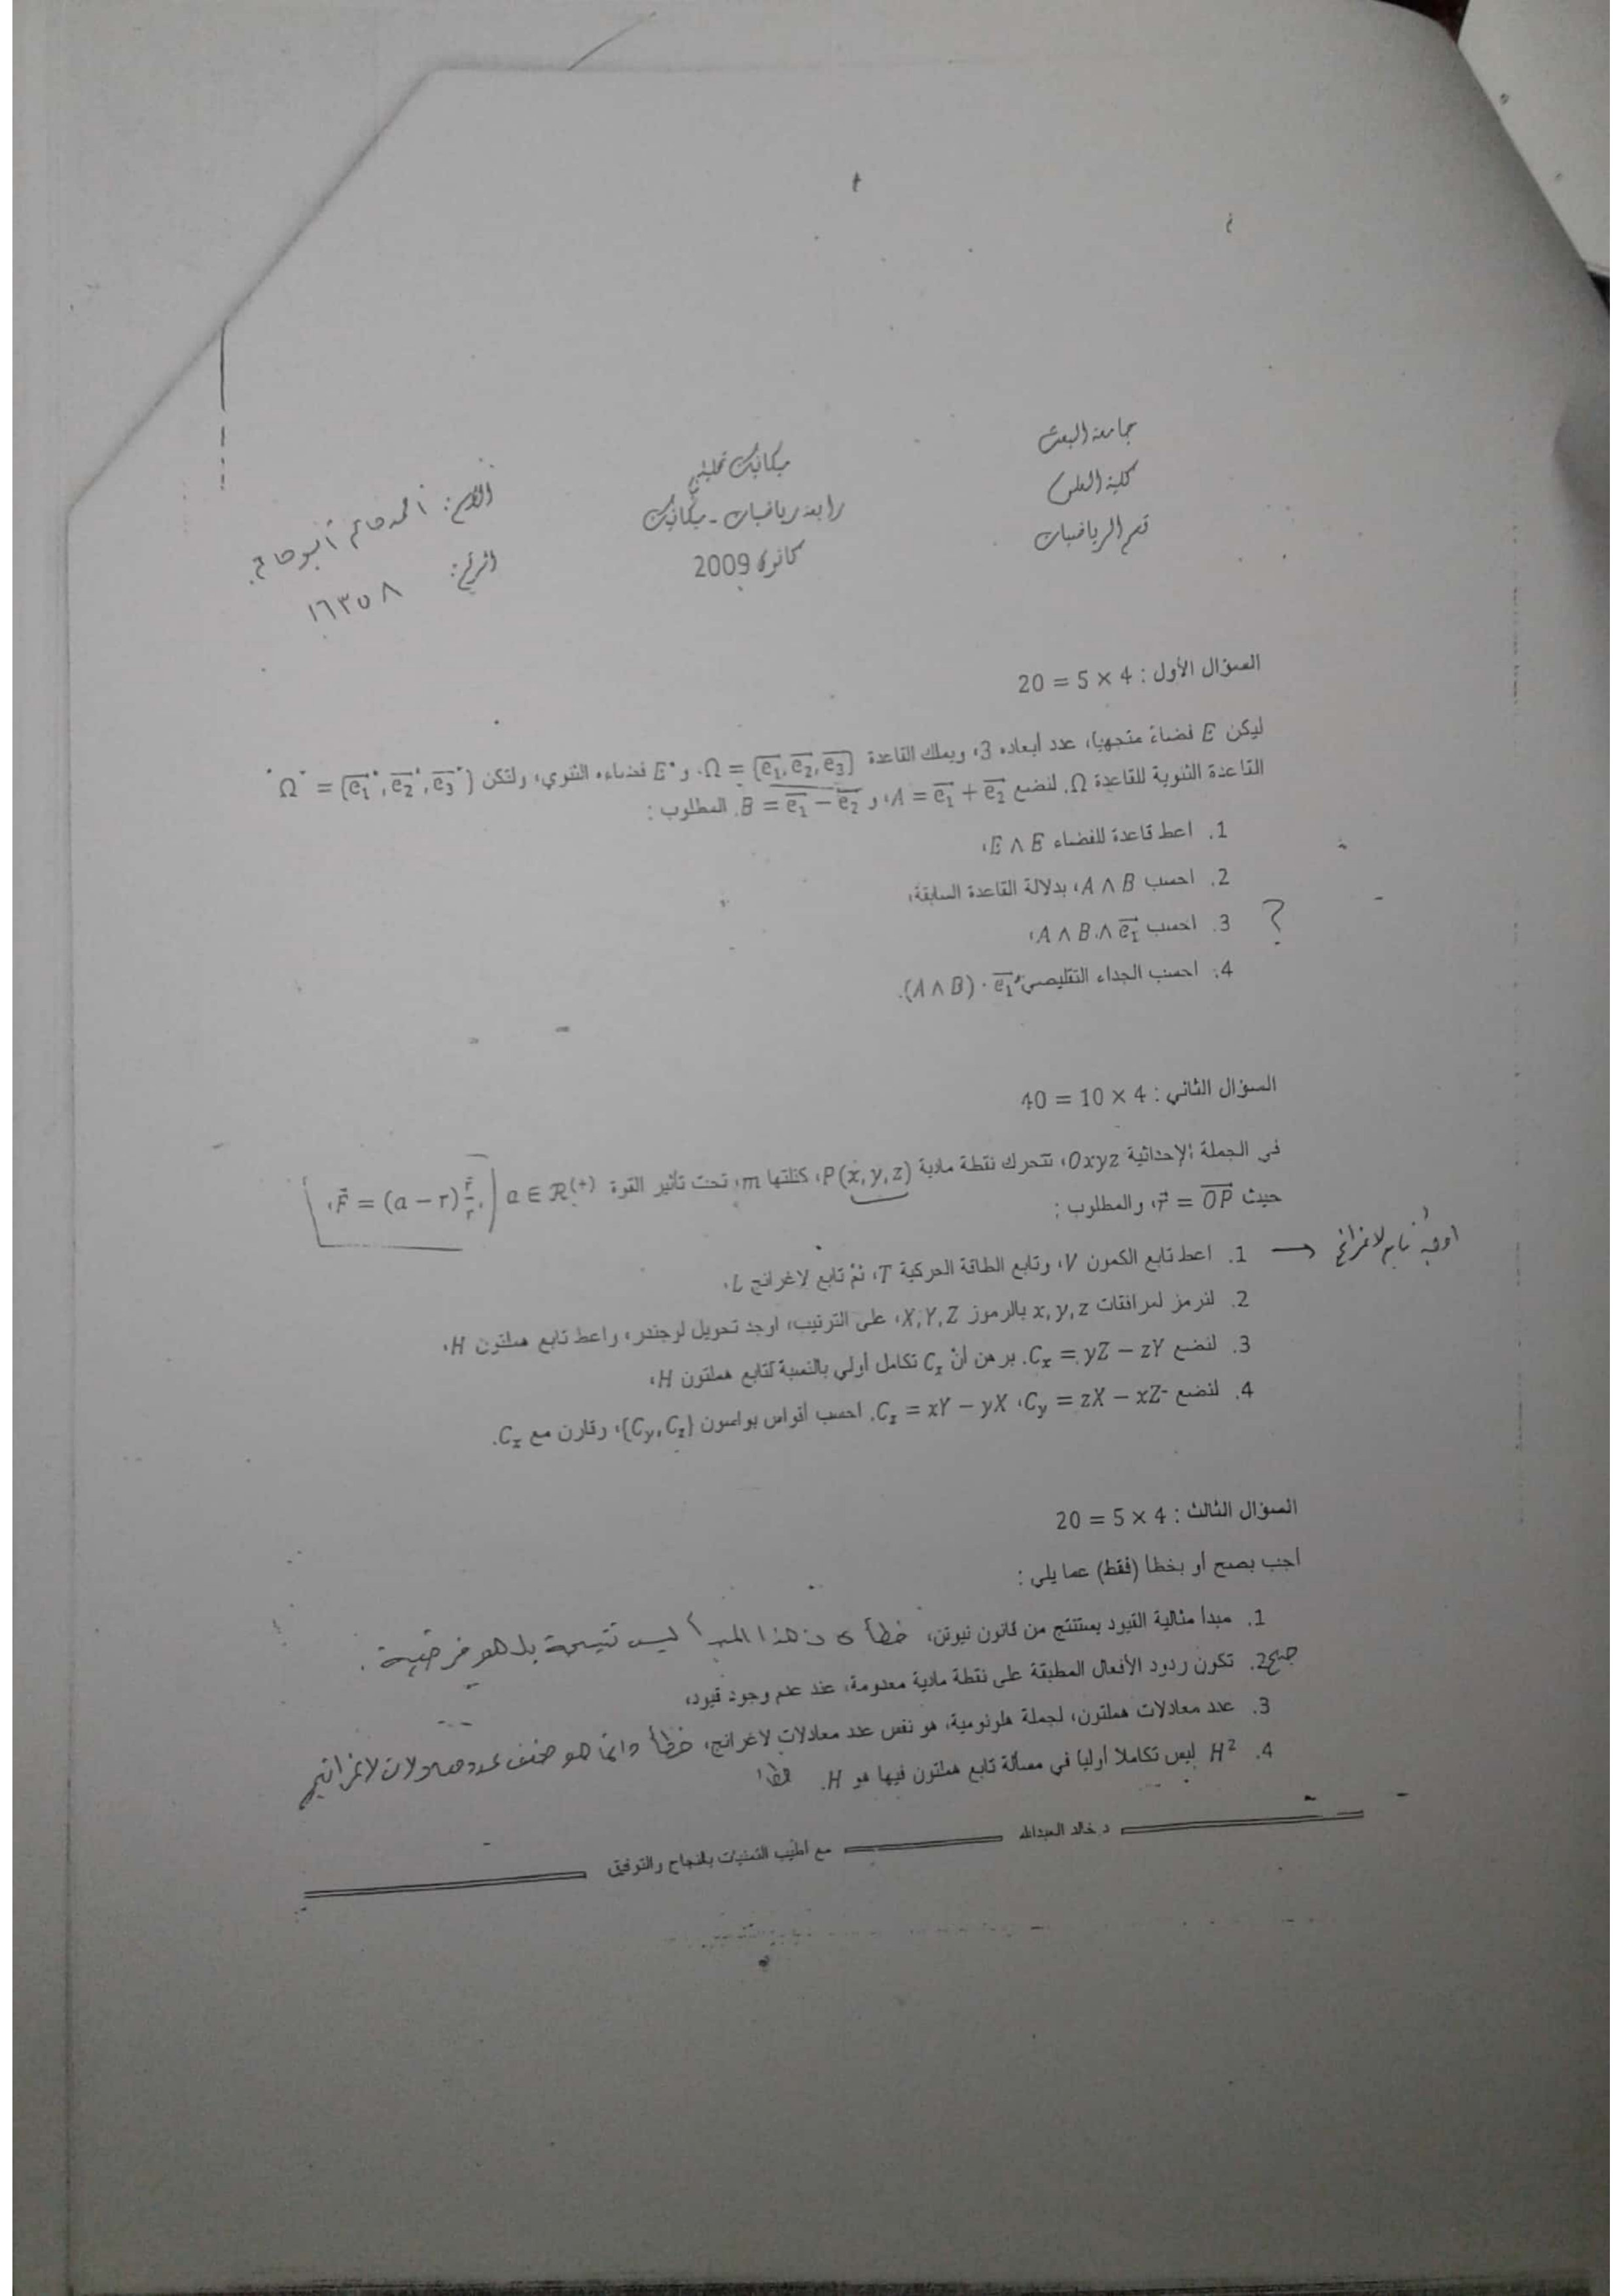 جامعة البعث
كلية العلوم
قسم الرياضيات
ميكانيك تحليلي
رابعة رياضيات - ميكانيك
كانون 2009
الاسم: أحمد حاتم أبو حاتم
الرقم: ١٦٣٥٨
السؤال الأول : 4 × 5 = 20
ليكن E فضاءً متجهياً، عدد أبعاده 3، ويملك القاعدة Ω = {e₁, e₂, e₃}، و E* فضاءه الثنوي، ولتكن Ω* = {e₁*, e₂*, e₃*}
القاعدة الثنوية للقاعدة Ω. لنضع A = e₁ + e₂، و B = e₁ − e₂. المطلوب :
1. اعط قاعدة للفضاء E ∧ E،
2. احسب A ∧ B، بدلالة القاعدة السابقة،
3. احسب A ∧ B ∧ e₁، ?
4. احسب الجداء التقليصي e₁* · (A ∧ B).
السؤال الثاني : 4 × 10 = 40
في الجملة الإحداثية Oxyz، تتحرك نقطة مادية P(x, y, z)، كتلتها m، تحت تأثير القوة F = (a − r) r/r، a ∈ ℛ(+)
حيث r = OP، والمطلوب :
1. اعط تابع الكمون V، وتابع الطاقة الحركية T، ثمّ تابع لاغرانج L، ← أوجد تابع لاغرانج
2. لنرمز لمرافقات x, y, z بالرموز X, Y, Z، على الترتيب، اوجد تحويل لوجندر، واعط تابع هملتون H،
3. لنضع Cₓ = yZ − zY. برهن أنّ Cₓ تكامل أولي بالنسبة لتابع هملتون H،
4. لنضع C_y = zX − xZ، C_z = xY − yX. احسب أقواس بواسون {C_y, C_z}، وقارن مع Cₓ.
السؤال الثالث : 4 × 5 = 20
أجب بصح أو بخطأ (فقط) عما يلي :
1. مبدأ مثالية القيود يستنتج من قانون نيوتن، خطأ هذا المبدأ ليس نتيجة بل هو فرضية .
2. تكون ردود الأفعال المطبقة على نقطة مادية معدومة، عند عدم وجود قيود، صح
3. عدد معادلات هملتون، لجملة هلونومية، هو نفس عدد معادلات لاغرانج، خطأ وإنما هو ضعف عدد معادلات لاغرانج
4. H² ليس تكاملاً أولياً في مسألة تابع هملتون فيها هو H. خطأ
د.خالد العبدالله
مع أطيب التمنيات بالنجاح والتوفيق